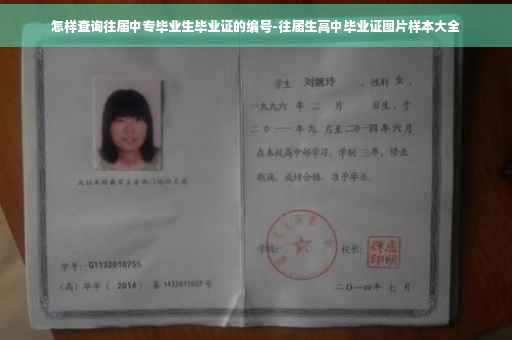 怎样查询往届中专毕业生毕业证的编号-往届生高中毕业证图片样本大全
学生 刘婉玲 ，性别 女 ，
一九九六 年 二 月 日生，于
二〇一一年九 月至二〇一四年六月
在本校高中部学习，学制 三年，修业
期满，成绩合格，准予毕业。
学号： G1132010755
(高) 毕字（ 2014 ）第 1432011027 号
学校：
校长：
二〇一四年 七 月